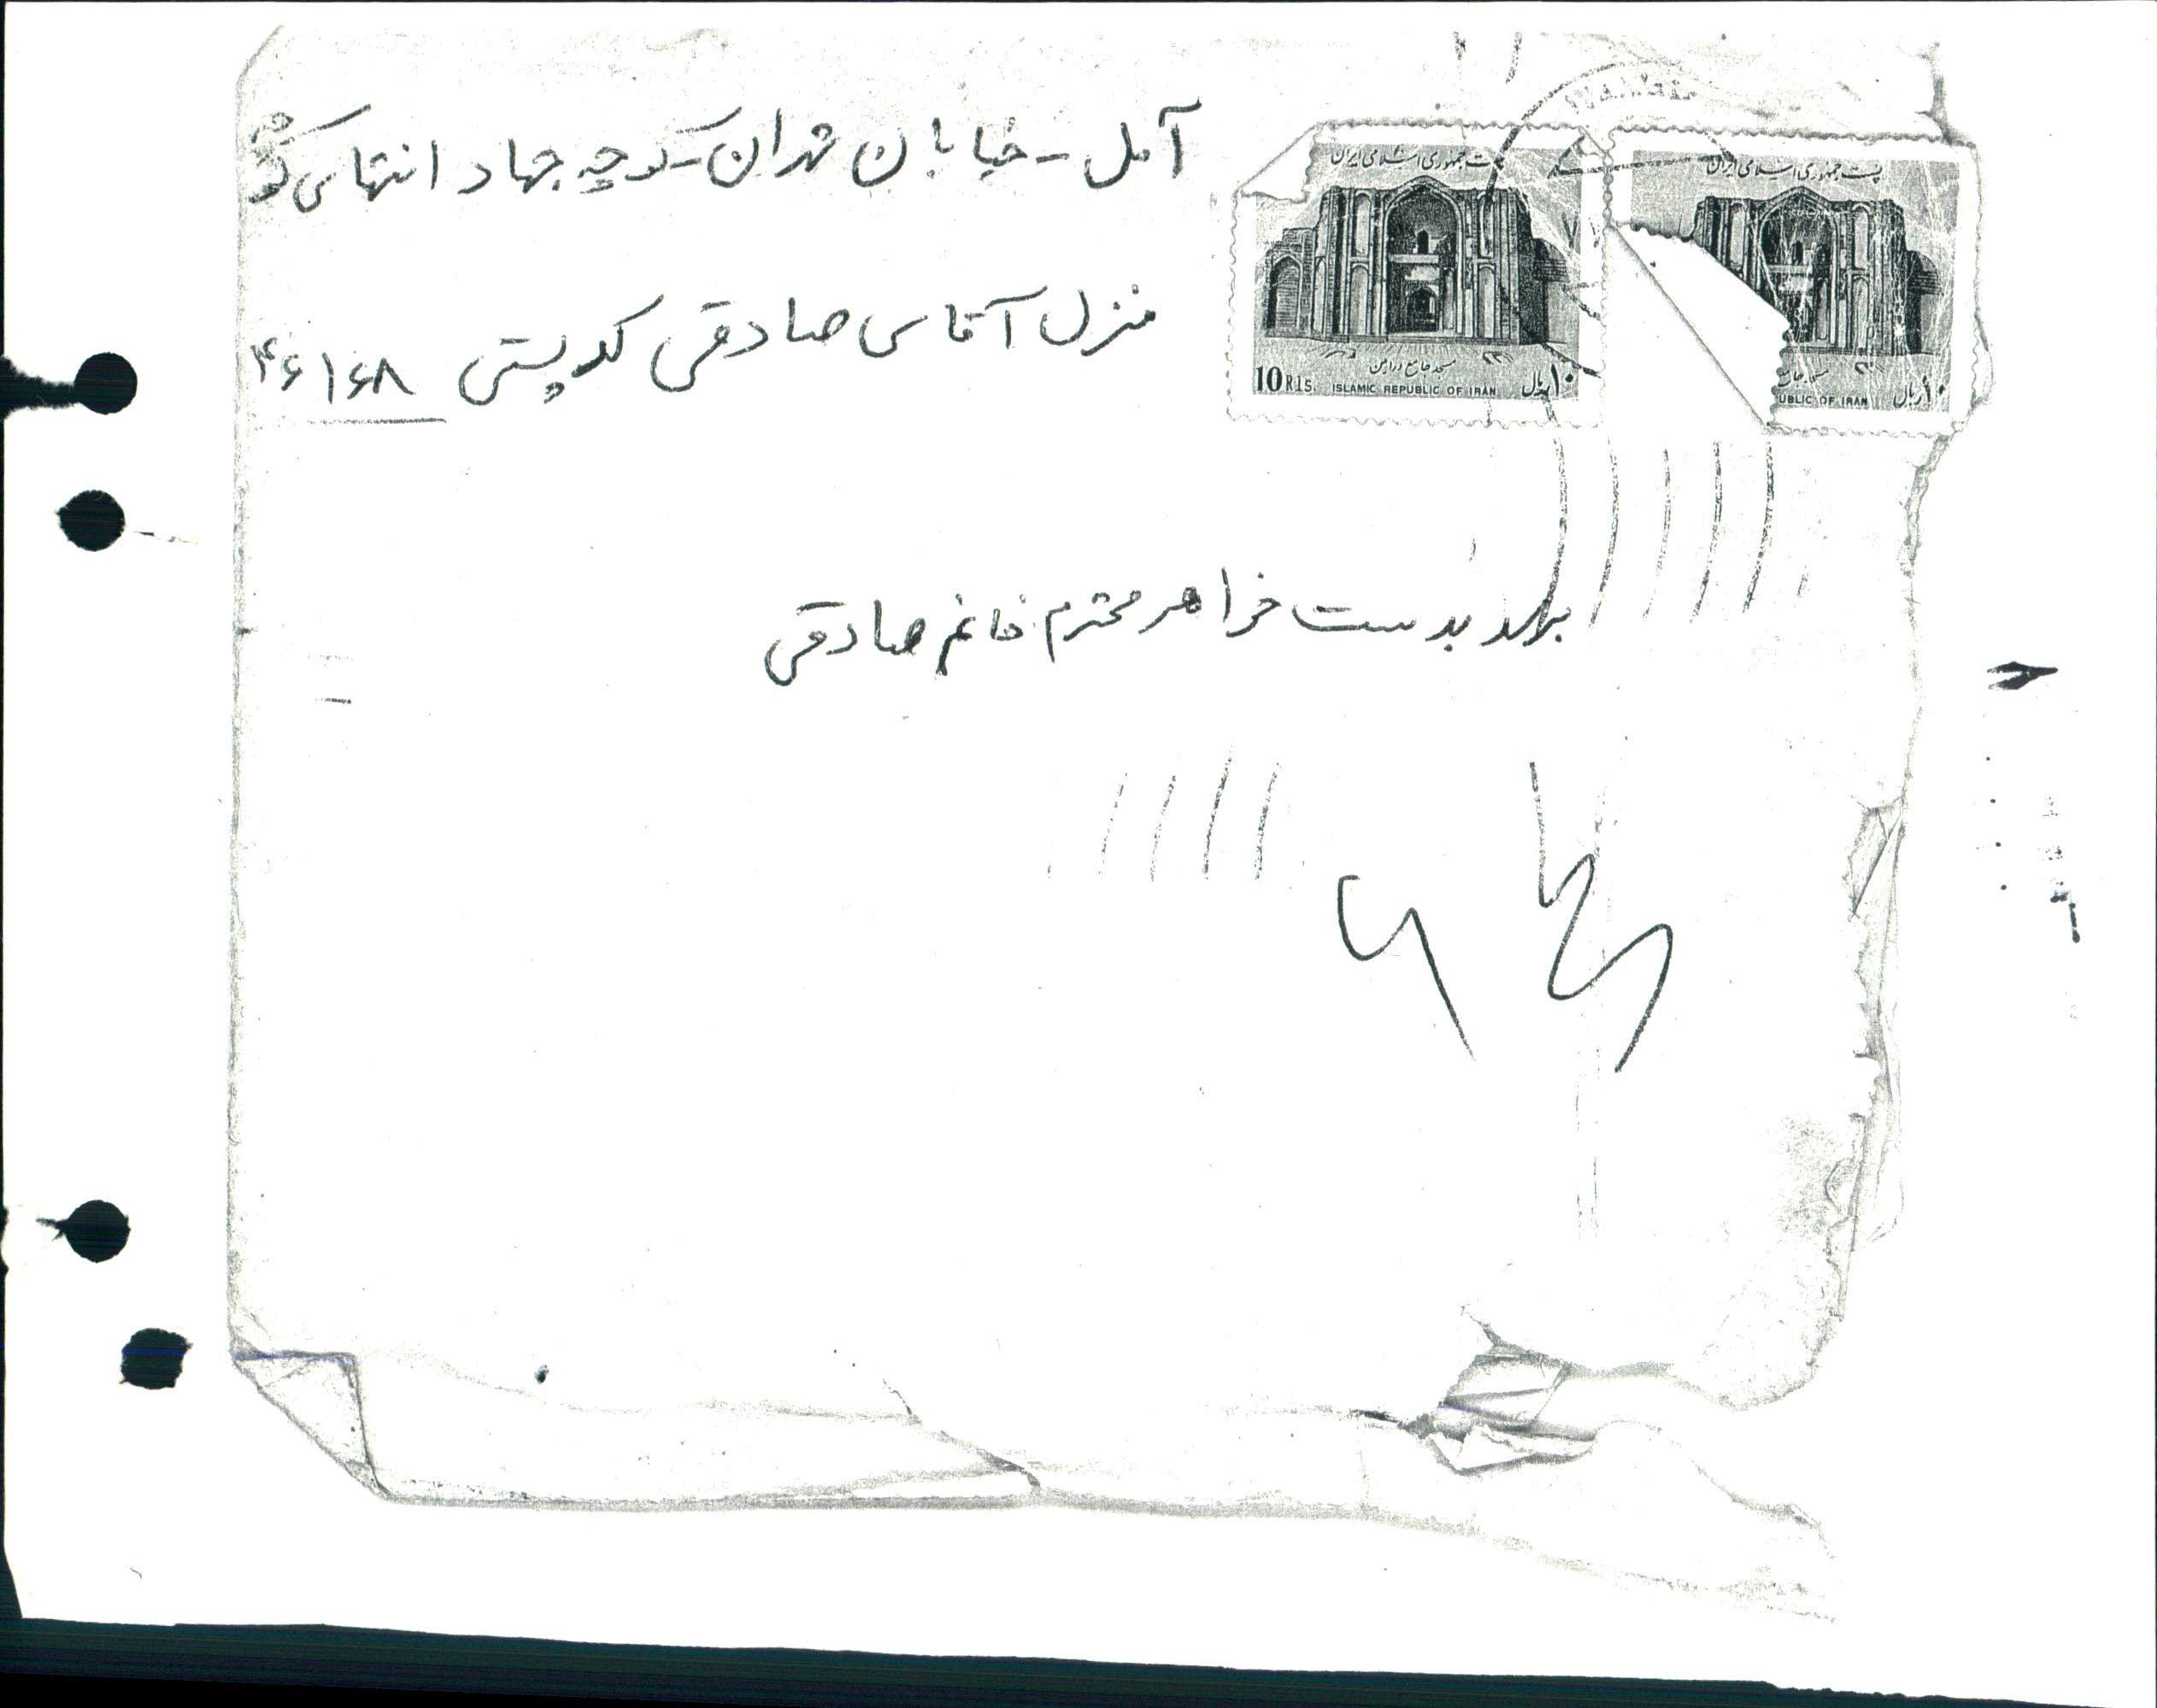 آمل - خیابان تهران - کوچه جهاد انتهای کوچه
منزل آقای صادقی کدپستی ۴۶۱۶۸
برسد بدست خواهر محترم خانم صادقی
پست جمهوری اسلامی ایران
مسجد جامع ورامین
10 Rls. ISLAMIC REPUBLIC OF IRAN ۱۰ ریال
پست جمهوری اسلامی ایران
مسجد جامع
UBLIC OF IRAN ۱۰ ریال